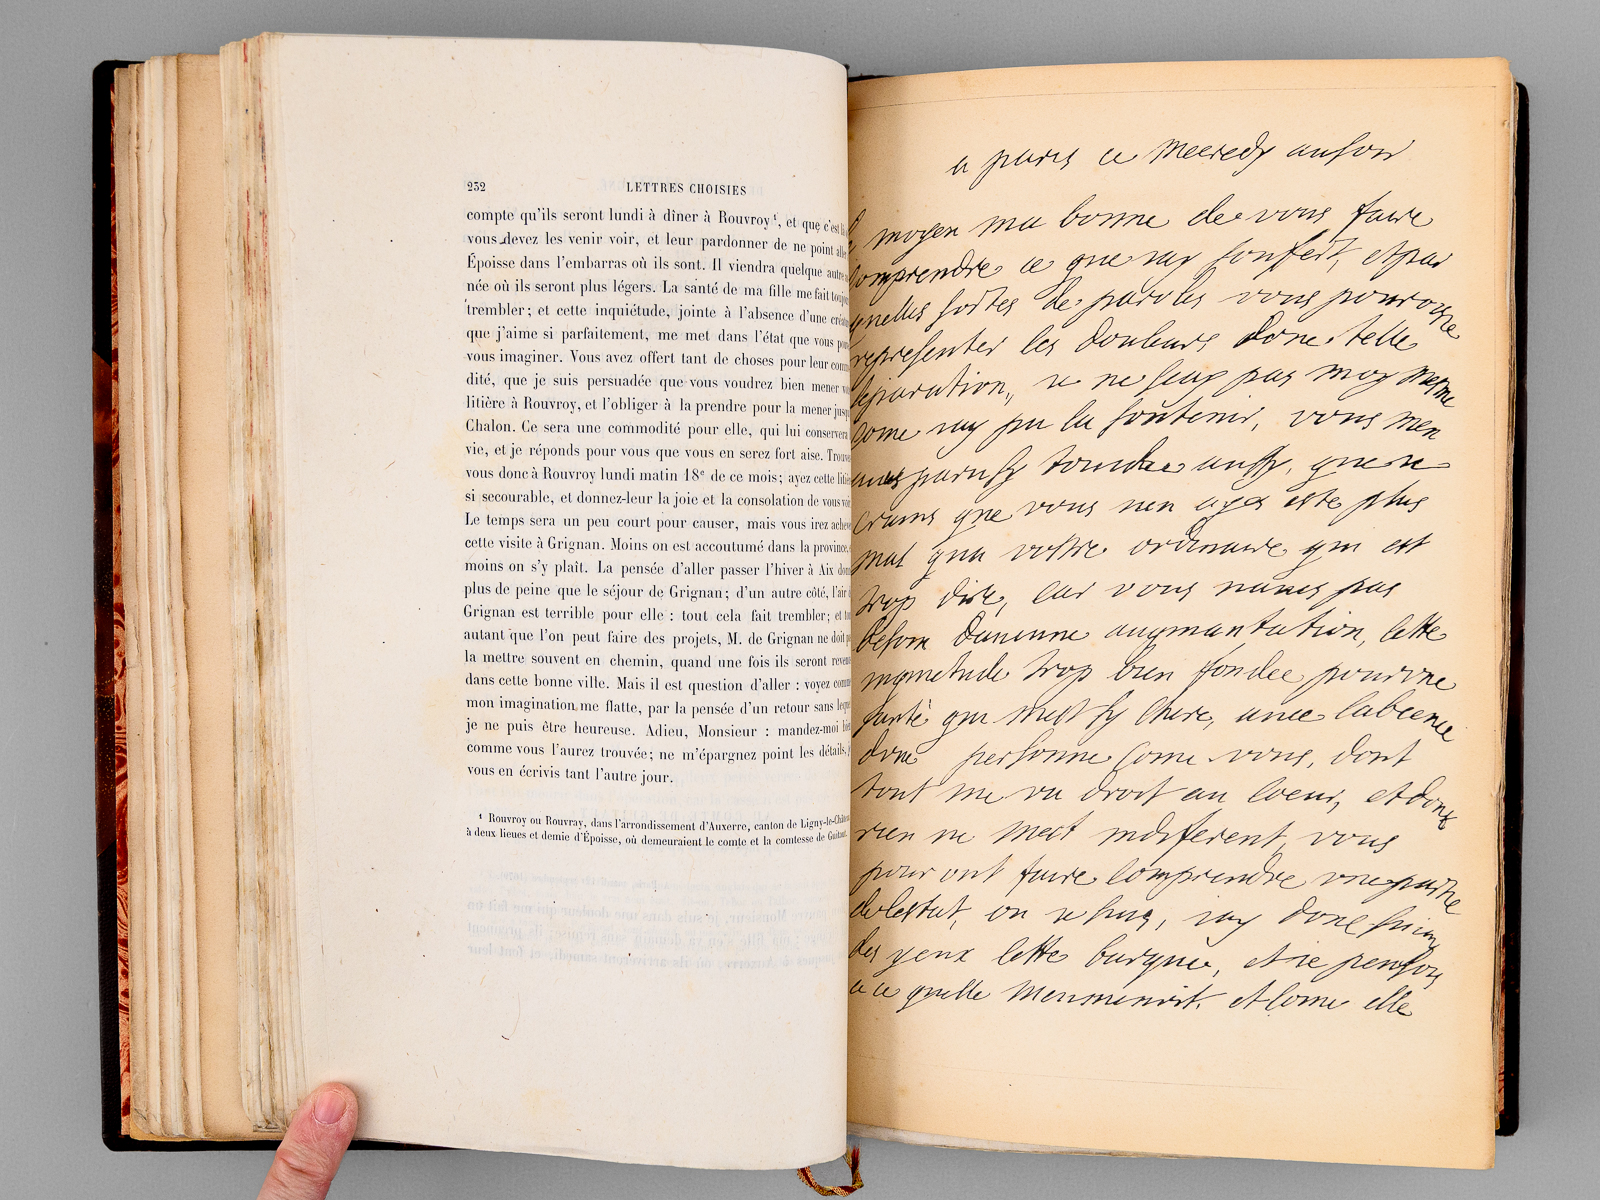 232 LETTRES CHOISIES
compte qu'ils seront lundi à dîner à Rouvroy¹, et que c'est là
vous devez les venir voir, et leur pardonner de ne point aller
Époisse dans l'embarras où ils sont. Il viendra quelque autre
née où ils seront plus légers. La santé de ma fille me fait toujours
trembler; et cette inquiétude, jointe à l'absence d'une
que j'aime si parfaitement, me met dans l'état que vous
vous imaginer. Vous avez offert tant de choses pour leur
dité, que je suis persuadée que vous voudrez bien mener
litière à Rouvroy, et l'obliger à la prendre pour la mener
Chalon. Ce sera une commodité pour elle, qui lui conservera
vie, et je réponds pour vous que vous en serez fort aise.
vous donc à Rouvroy lundi matin 18ᵉ de ce mois; ayez cette
si secourable, et donnez-leur la joie et la consolation de vous
Le temps sera un peu court pour causer, mais vous irez
cette visite à Grignan. Moins on est accoutumé dans la province,
moins on s'y plaît. La pensée d'aller passer l'hiver à Aix
plus de peine que le séjour de Grignan; d'un autre côté, l'air
Grignan est terrible pour elle : tout cela fait trembler; et
autant que l'on peut faire des projets, M. de Grignan ne doit
la mettre souvent en chemin, quand une fois ils seront
dans cette bonne ville. Mais il est question d'aller : voyez
mon imagination me flatte, par la pensée d'un retour sans
je ne puis être heureuse. Adieu, Monsieur : mandez-moi
comme vous l'aurez trouvée; ne m'épargnez point les détails,
vous en écrivis tant l'autre jour.
¹ Rouvroy ou Rouvray, dans l'arrondissement d'Auxerre, canton de Ligny-le-Châtel
à deux lieues et demie d'Époisse, où demeuraient le comte et la comtesse de Guitaut.
a paris ce mecredy au soir
moyen ma bonne de vous faire
comprendre ce que jay soufert, et par
quelles sortes de paroles vous pourois je
representer les douleurs dune telle
separation, je ne scay pas moy mesme
come jay pu la soutenir, vous men
aues paru sy touchee aussy, que je
crains que vous nen ayes este plus
mal qua vostre ordinaire qui est
trop dire, car vous naues pas
besoin daucune augmantation, cette
inquietude trop bien fondee pour vne
santé qui mest sy chere, auec labcence
dune personne come vous, dont
tout me va droit au coeur, et dont
rien ne mest indiferent, vous
pouront faire comprendre vne partie
de lestat, ou je suis, jay donc suiuy
des yeux cette barque, et je pensois
a ce quelle menmenoit, et come elle